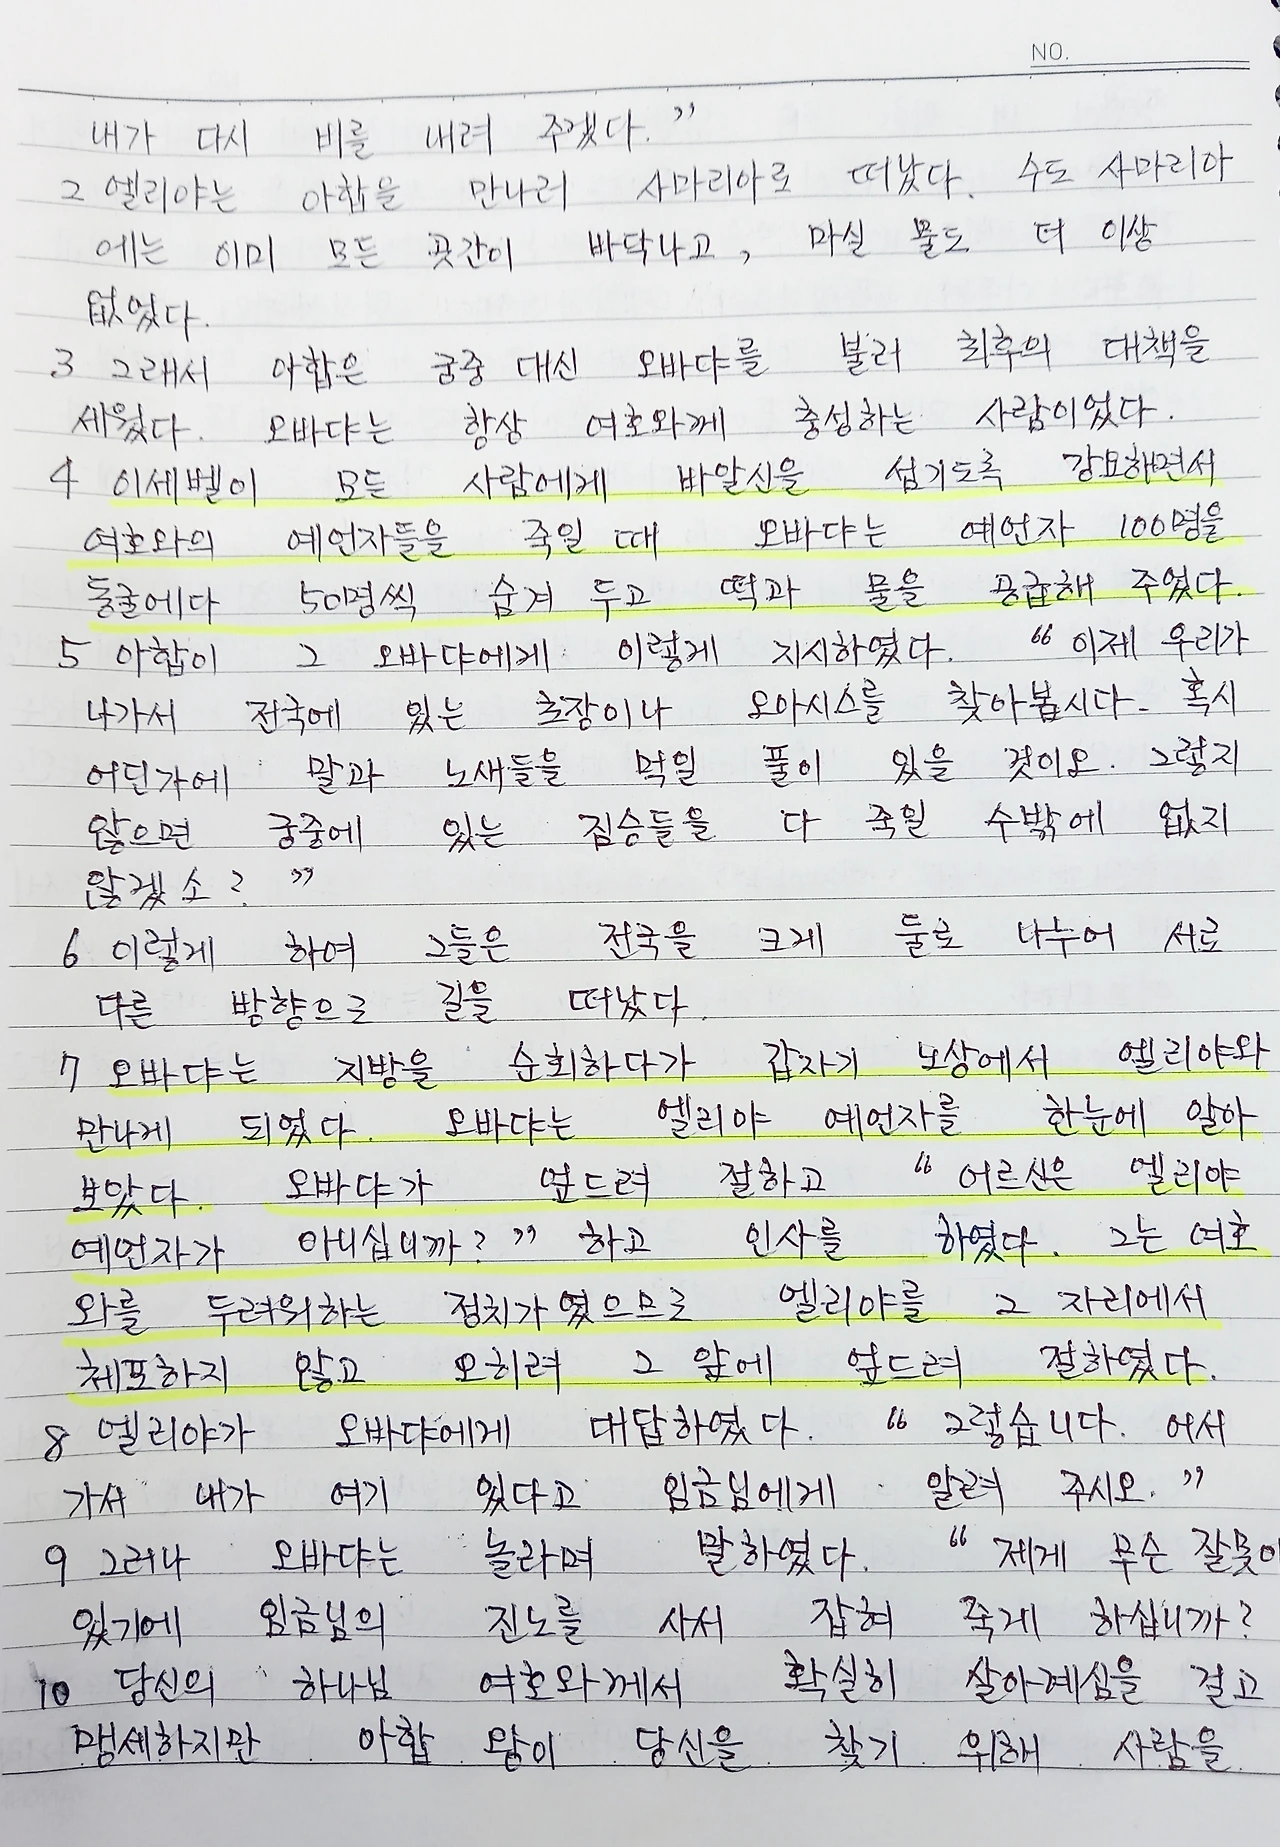 NO.
내가 다시 비를 내려 주겠다."
2 엘리야는 아합을 만나러 사마리아로 떠났다. 수도 사마리아
에는 이미 모든 곳간이 바닥나고, 마실 물도 더 이상
없었다.
3 그래서 아합은 궁중 대신 오바댜를 불러 최후의 대책을
세웠다. 오바댜는 항상 여호와께 충성하는 사람이었다.
4 이세벨이 모든 사람에게 바알신을 섬기도록 강요하면서
여호와의 예언자들을 죽일 때 오바댜는 예언자 100명을
동굴에다 50명씩 숨겨 두고 떡과 물을 공급해 주었다.
5 아합이 그 오바댜에게 이렇게 지시하였다. "이제 우리가
나가서 전국에 있는 초장이나 오아시스를 찾아봅시다. 혹시
어딘가에 말과 노새들을 먹일 풀이 있을 것이오. 그렇지
않으면 궁중에 있는 짐승들을 다 죽일 수밖에 없지
않겠소?"
6 이렇게 하여 그들은 전국을 크게 둘로 나누어 서로
다른 방향으로 길을 떠났다.
7 오바댜는 지방을 순회하다가 갑자기 노상에서 엘리야와
만나게 되었다. 오바댜는 엘리야 예언자를 한눈에 알아
보았다. 오바댜가 엎드려 절하고 "어르신은 엘리야
예언자가 아니십니까?" 하고 인사를 하였다. 그는 여호
와를 두려워하는 정치가였으므로 엘리야를 그 자리에서
체포하지 않고 오히려 그 앞에 엎드려 절하였다.
8 엘리야가 오바댜에게 대답하였다. "그렇습니다. 어서
가서 내가 여기 있다고 임금님에게 알려 주시오."
9 그러나 오바댜는 놀라며 말하였다. "제게 무슨 잘못이
있기에 임금님의 진노를 사서 잡혀 죽게 하십니까?
10 당신의 하나님 여호와께서 확실히 살아계심을 걸고
맹세하지만 아합 왕이 당신을 찾기 위해 사람을